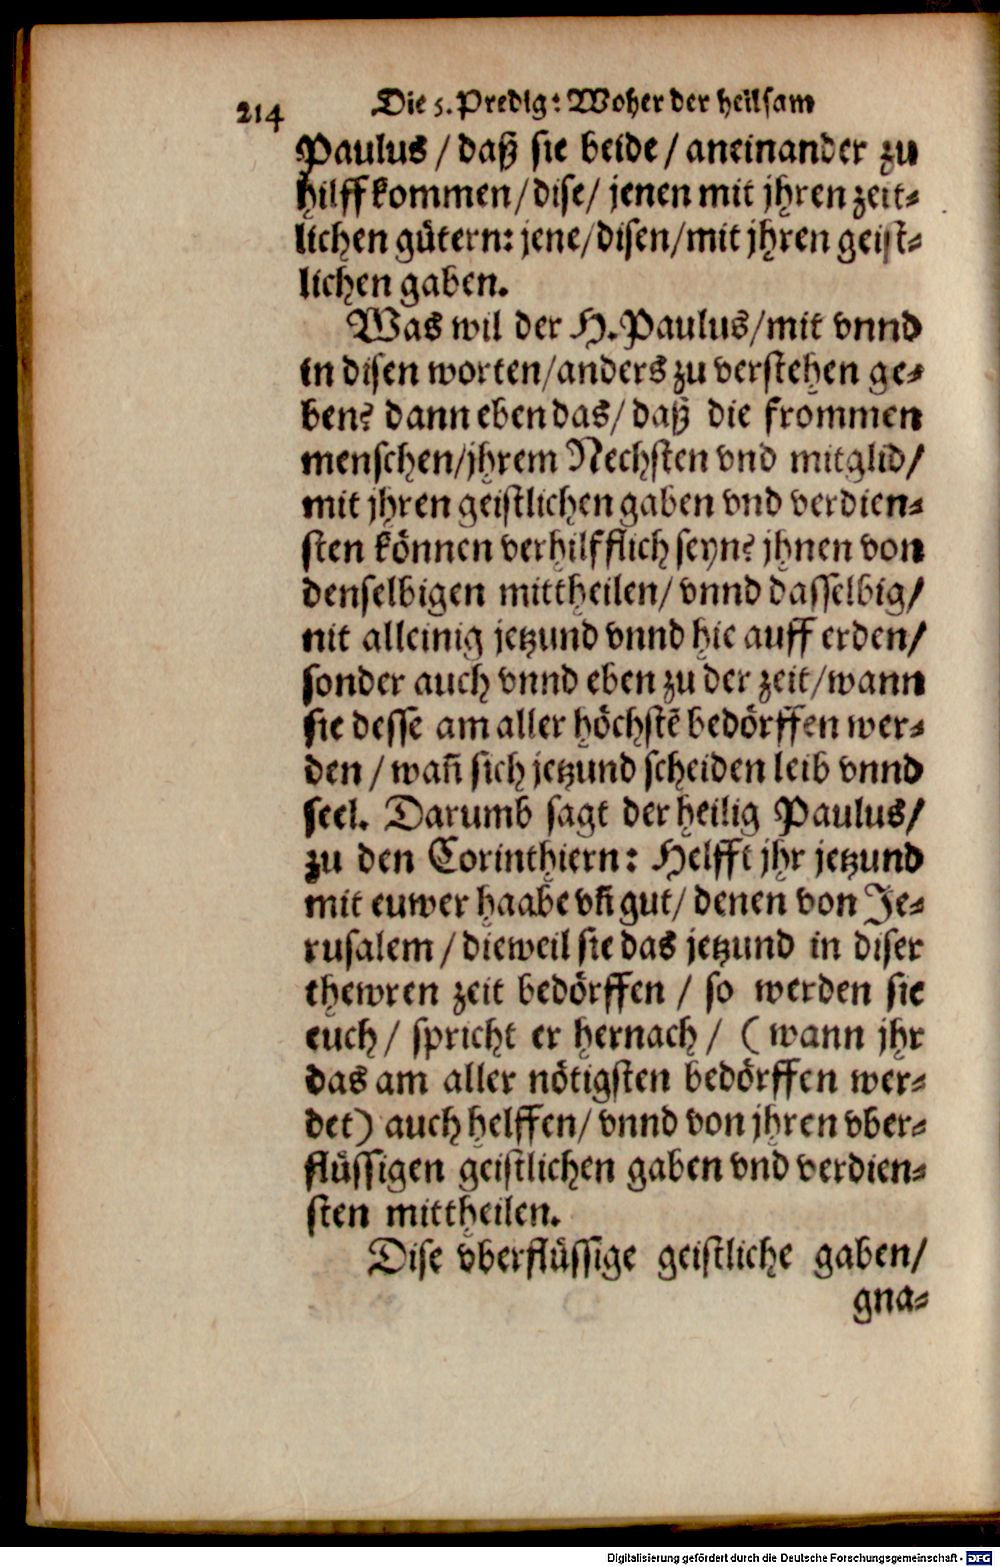 214 Die 5. Predig: Woher der heilsam
Paulus / daß sie beide / aneinander zu
hilff kommen / dise / jenen mit jhren zeit-
lichen gütern: jene / disen / mit jhren geist-
lichen gaben.
Was wil der H. Paulus / mit vnnd
in disen worten / anders zu verstehen ge-
ben? dann eben das / daß die frommen
menschen / jhrem Nechsten vnd mitglid /
mit jhren geistlichen gaben vnd verdien-
sten können verhilfflich seyn? jhnen von
denselbigen mittheilen / vnnd dasselbig /
nit alleinig jetzund vnnd hie auff erden /
sonder auch vnnd eben zu der zeit / wann
sie desse am aller höchstẽ bedörffen wer-
den / wañ sich jetzund scheiden leib vnnd
seel. Darumb sagt der heilig Paulus /
zu den Corinthiern: Helfft jhr jetzund
mit euwer haabe vñ gut / denen von Je-
rusalem / dieweil sie das jetzund in diser
thewren zeit bedörffen / so werden sie
euch / spricht er hernach / (wann jhr
das am aller nötigsten bedörffen wer-
det) auch helffen / vnnd von jhren vber-
flüssigen geistlichen gaben vnd verdien-
sten mittheilen.
Dise vberflüssige geistliche gaben /
gna-
Digitalisierung gefördert durch die Deutsche Forschungsgemeinschaft - DFG